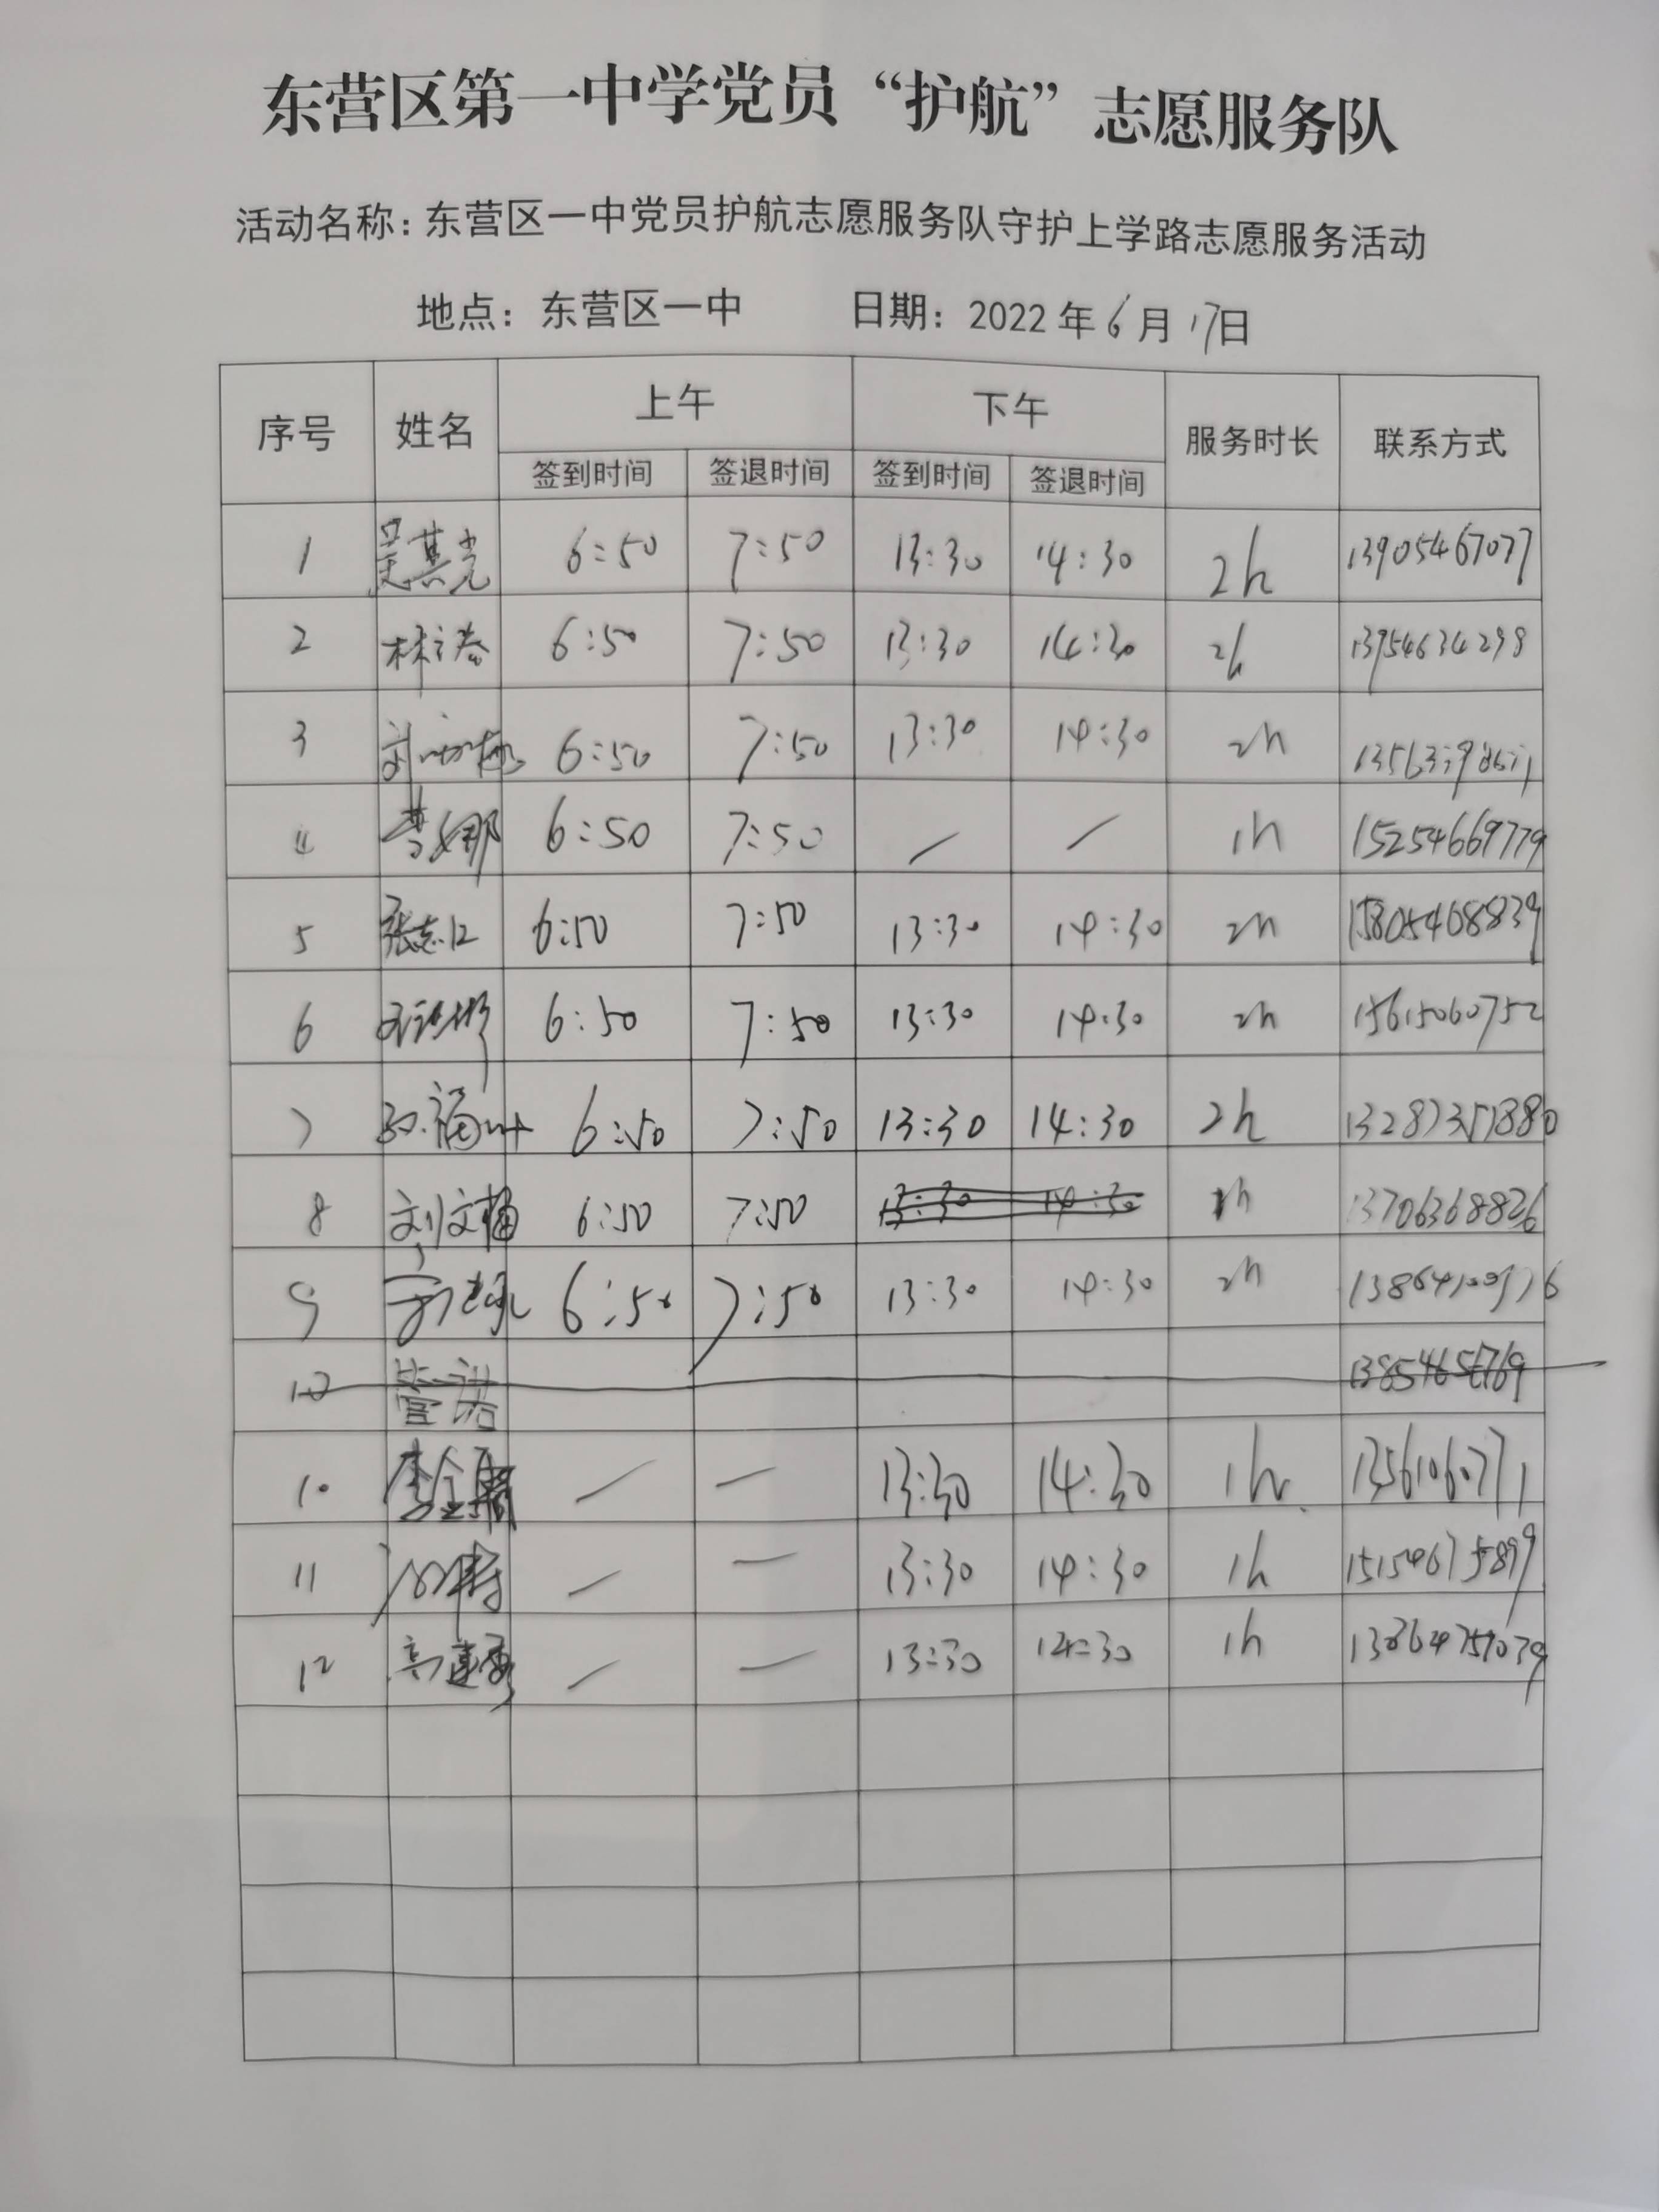 东营区第一中学党员“护航”志愿服务队
活动名称：东营区一中党员护航志愿服务队守护上学路志愿服务活动
地点：东营区一中 日期：2022年6月17日
序号 姓名 上午 下午 服务时长 联系方式
签到时间 签退时间 签到时间 签退时间
1 吴其光 6:50 7:50 13:30 14:30 2h 13905467077
2 6:50 7:50 13:30 14:30 2h 13954634298
3 6:50 7:50 13:30 14:30 2h
4 李娜 6:50 7:50 / / 1h 15254669779
5 6:50 7:50 13:30 14:30 2h 15805468839
6 6:50 7:50 13:30 14:30 2h 15615060752
7 6:50 7:50 13:30 14:30 2h 13287351880
8 刘文楠 6:50 7:50 13:30 14:30 1h 13706368826
9 6:50 7:50 13:30 14:30 2h
10 管诺
10 — — 13:30 14:30 1h
11 — — 13:30 14:30 1h 15154675899
12 — — 13:30 14:30 1h